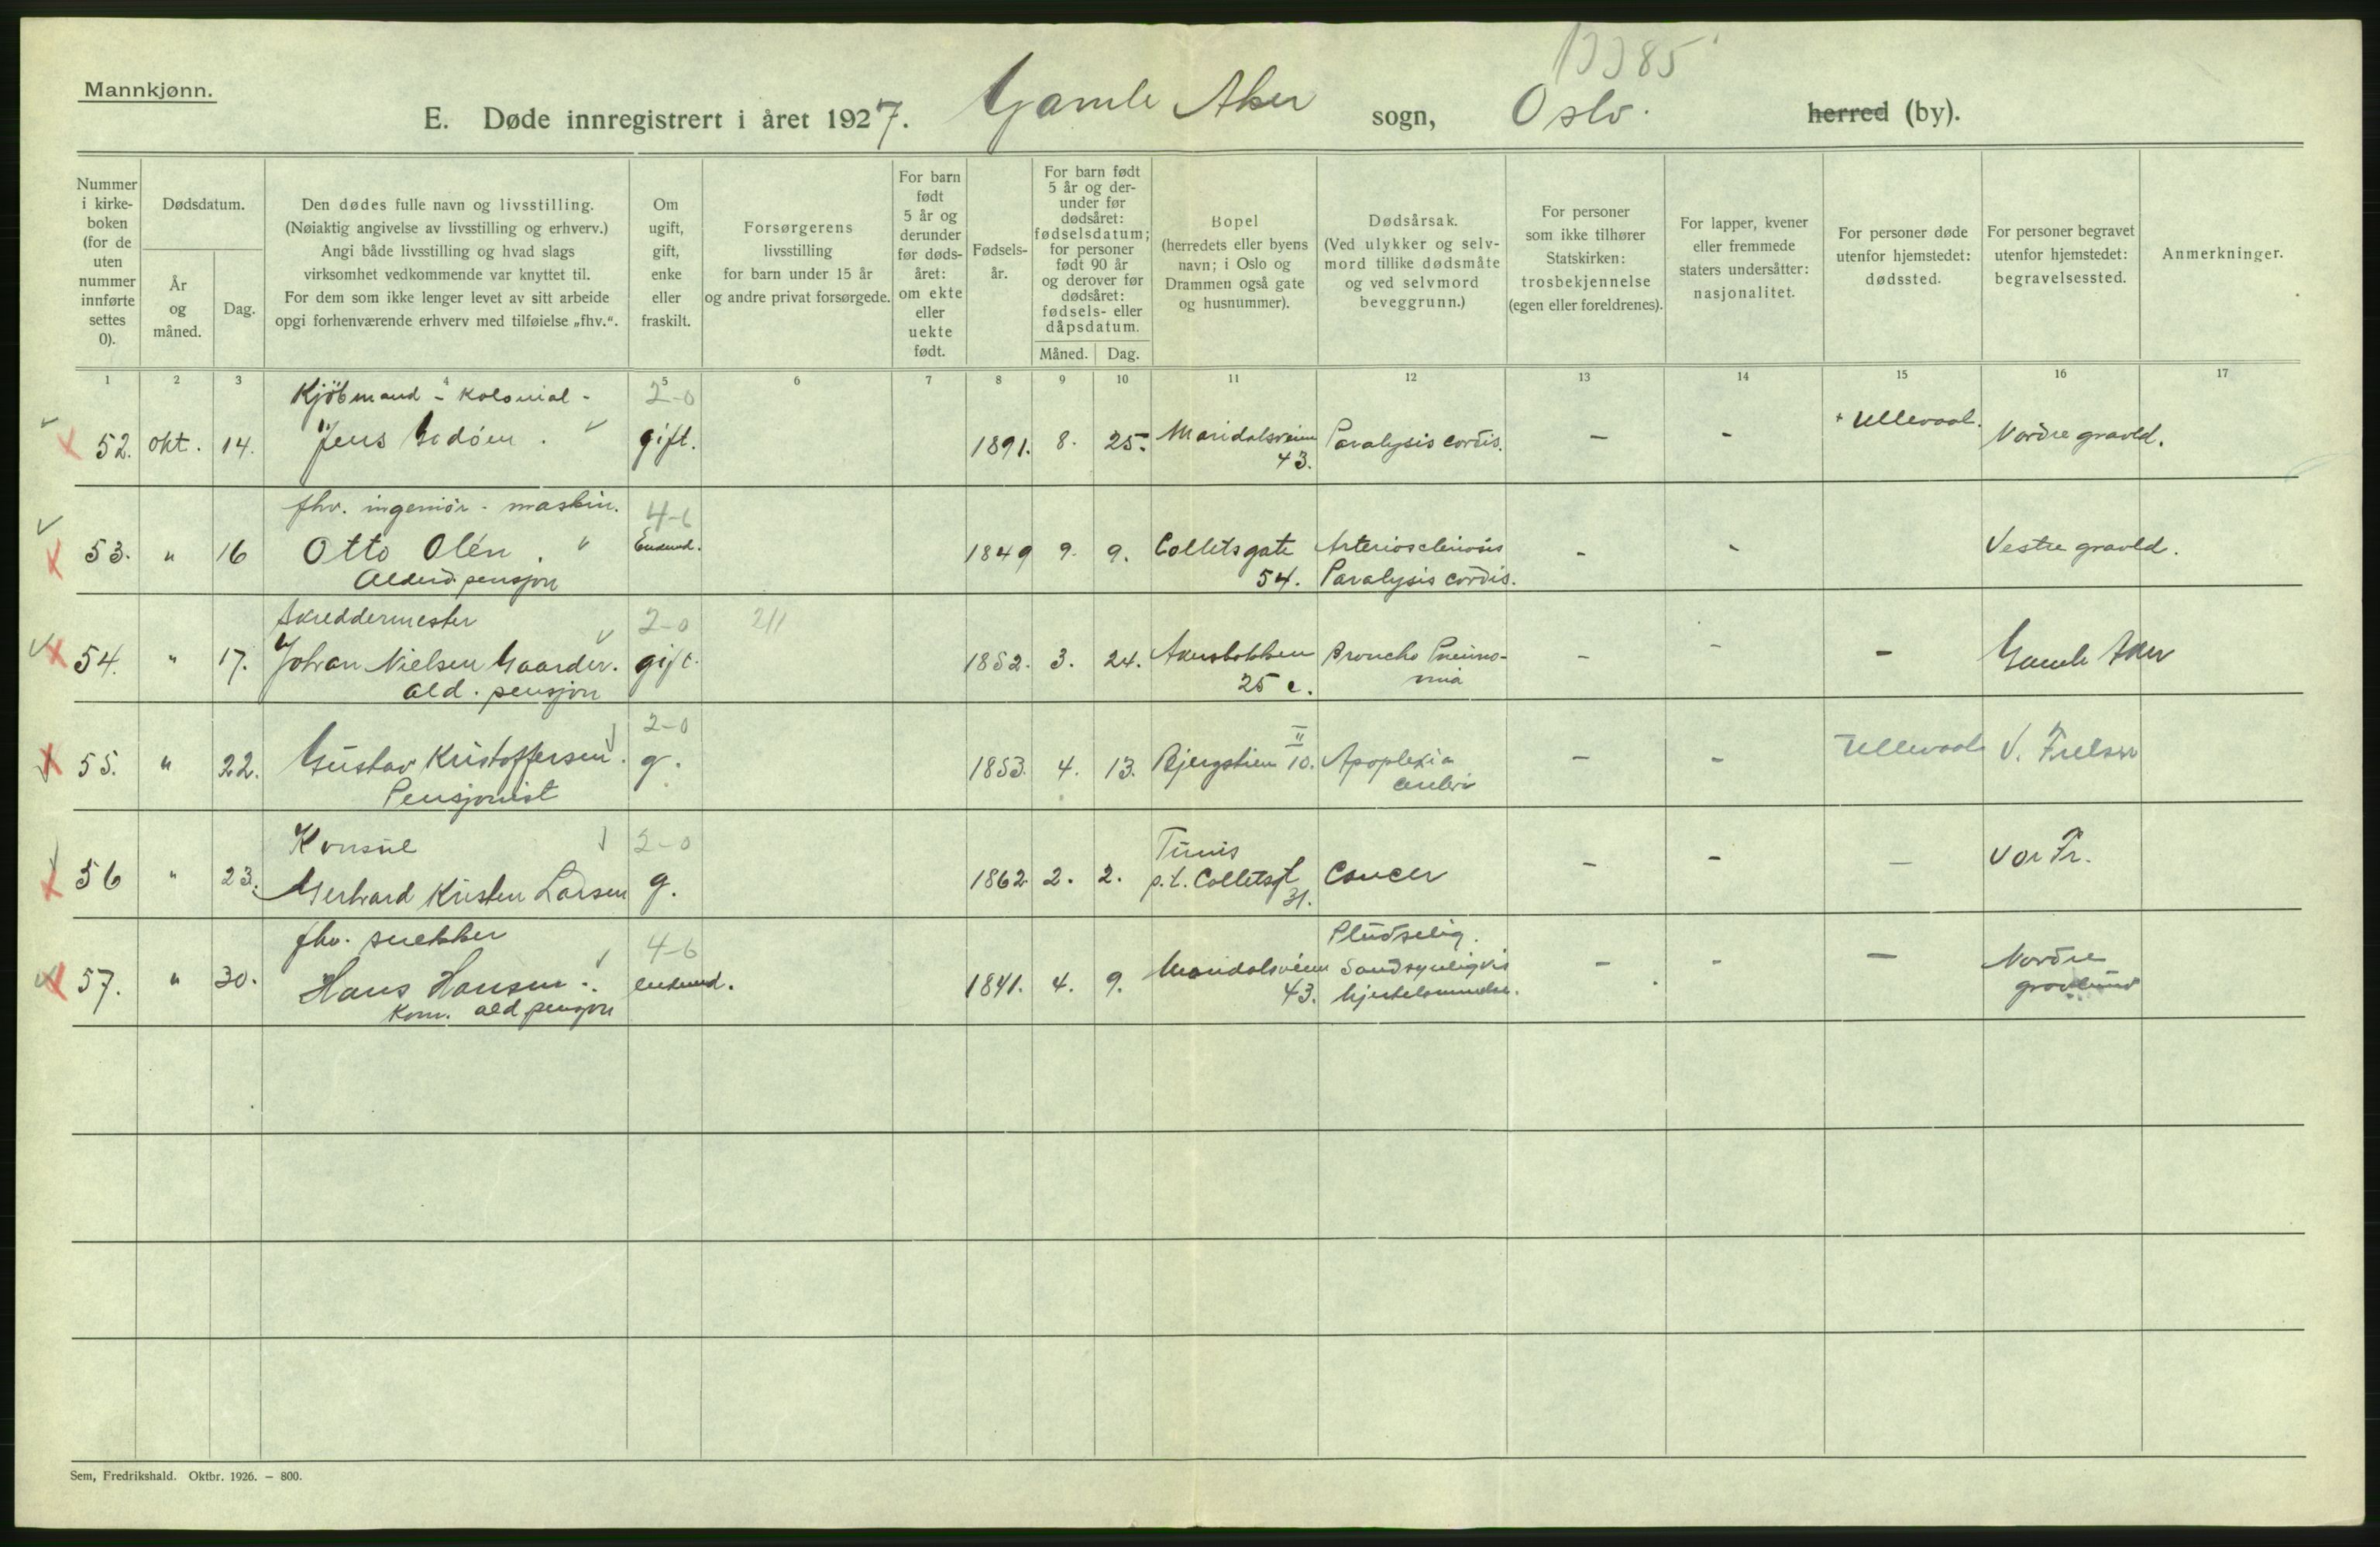 Mannkjønn.
E. Døde innregistrert i året 1927. Gamle Aker sogn, Oslo. herred (by).
Nummer i kirke-boken (for de uten nummer innførte settes 0).
Dødsdatum.
År og måned.
Dag.
Den dødes fulle navn og livsstilling.
(Nøiaktig angivelse av livsstilling og erhverv.)
Angi både livsstilling og hvad slags
virksomhet vedkommende var knyttet til.
For dem som ikke lenger levet av sitt arbeide
opgi forhenværende erhverv med tilføielse „fhv.“.
Om ugift, gift, enke eller fraskilt.
Forsørgerens
livsstilling
for barn under 15 år
og andre privat forsørgede.
For barn født 5 år og derunder før døds-året: om ekte eller uekte født.
Fødsels-år.
For barn født 5 år og der-under før dødsåret: fødselsdatum; for personer født 90 år og derover før dødsåret: fødsels- eller dåpsdatum.
Måned.
Dag.
Bopel
(herredets eller byens
navn; i Oslo og
Drammen også gate
og husnummer).
Dødsårsak.
(Ved ulykker og selv-
mord tillike dødsmåte
og ved selvmord
beveggrunn.)
For personer
som ikke tilhører
Statskirken:
trosbekjennelse
(egen eller foreldrenes).
For lapper, kvener
eller fremmede
staters undersåtter:
nasjonalitet.
For personer døde
utenfor hjemstedet:
dødssted.
For personer begravet
utenfor hjemstedet:
begravelsessted.
Anmerkninger.
1 2 3 4 5 6 7 8 9 10 11 12 13 14 15 16 17
Kjöbmand - Kolonial - 2-0
52. okt. 14. Jens gift. 1891. 8. 25. Maridalsveien 43. Paralysis cordis. - - + Ullevaal. Nordre gravld.
fhv. ingeniör - maskin. 4-6
53. " 16 Otto Olén. Enkemd. 1849 9. 9. Colletsgate 54. Arteriosclerosis Paralysis cordis. - - Vestre gravld.
Alders pensjon
Skreddermester 2-0 211
54. " 17. Johan Nielsen Gaarder. gift. 1852. 3. 24. Akersbakken 25 c. Broncho Pneumo-nia - - - Gamle Aker
ald. pensjon
2-0
55. " 22. Gustav Kristoffersen. g. 1853. 4. 13. Bjergstien 10. II Apoplexia cerebri - - Ullevaal V. Frelser
Pensjonist
Konsul 2-0
56 " 23. Gerhard Kristen Larsen g. 1862 2. 2. Tunis p.t. Colletsgt 31. Cancer - - - Vor Fr.
fhv. snekker 4-6
57. " 30. Hans Hansen. enkemd. 1841. 4. 9. Maridalsveien 43. Pludselig. Sandsynligvis hjertelammelse. - - - Nordre gravlund
Kom. ald pensjon
Sem, Fredrikshald. Oktbr. 1926. – 800.